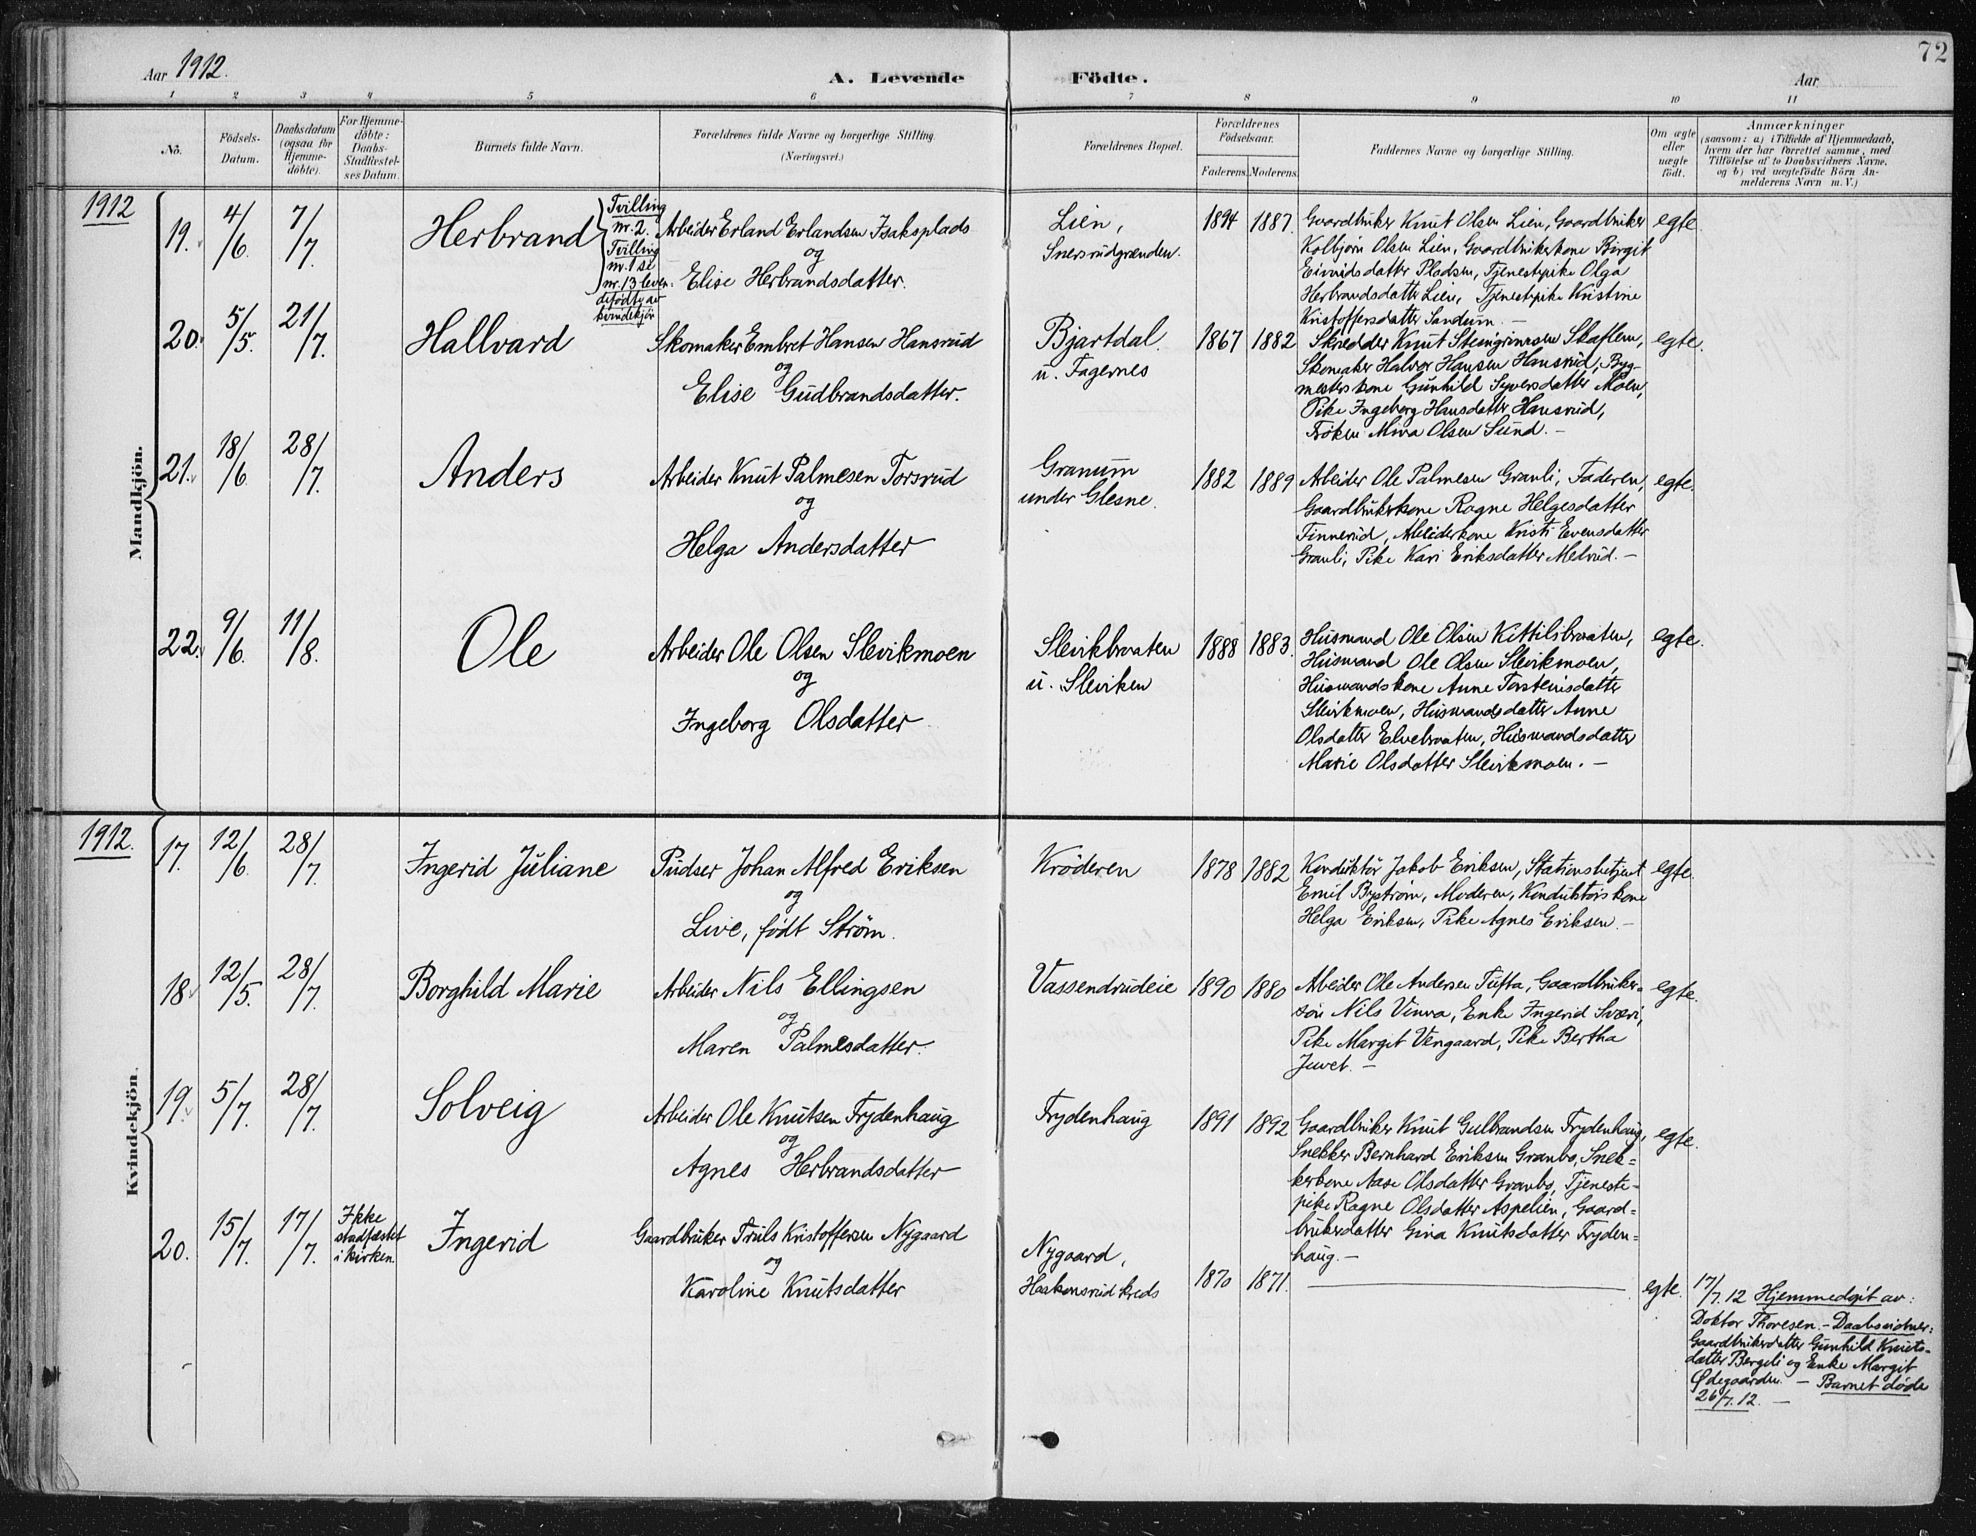 72
Aar 1912.
A. Levende Födte.
Aar
1 2 3 4 5 6 7 8 9 10 11
No.
Födsels-Datum.
Daabsdatum (ogsaa for Hjemme-döbte).
For Hjemme-döbte: Daabs-Stadfæstel-ses Datum.
Barnets fulde Navn.
Forældrenes fulde Navne og borgerlige Stilling.
(Næringsvei.)
Forældrenes Bopæl.
Forældrenes Födselsaar.
Faderens. Moderens.
Faddernes Navne og borgerlige Stilling.
Om ægte eller uægte födt.
Anmærkninger
(saasom: a) i Tilfælde af Hjemmedaab,
hvem der har forrettet samme, med
Tilföielse af to Daabsvidners Navne,
og b) ved uægtefödte Börn An-
melderens Navn m. V.)
Mandkjön.
1912
19. 4/6. 7/7.
Herbrand
Tvilling
nr. 2.
Tvilling
nr. 1 se
nr. 13 leven-
defødte av
kvindekjøn
Arbeider Erland Erlandsen Isaksplads
og
Elise Herbrandsdatter.
Lien,
Snersrudgrænden.
1894 1887.
Gaardbruker Knut Olsen Lien, Gaardbruker
Kolbjørn Olsen Lien, Gaardbrukerkone Birgit
Eivindsdatter Pladsen, Tjenestepike Olga
Herbrandsdatter Lien, Tjenestepike Kristine
Kristoffersdatter Sandum. –
egte
20. 5/5. 21/7.
Hallvard
Skomaker Embret Hansen Hansrud
og
Elise Gudbrandsdatter.
Bjartdal
u. Fagernes
1867 1882
Skrædder Knut Steingrimsen Skaflem,
Skomaker Halvor Hansen Hansrud, Byg-
mesterskone Gunhild Syversdatter Moen,
Pike Ingeborg Hansdatter Hansrud,
Frøken Mina Olsen Sund. –
egte.
21. 18/6 28/7.
Anders
Arbeider Knut Palmesen Torsrud
og
Helga Andersdatter
Granum
under Glesne.
1882 1889
Arbeider Ole Palmesen Granli, Faderen,
Gaardbrukerkone Ragne Helgesdatter
Finnerud, Arbeiderkone Kristi Evensdatter
Granli, Pike Kari Eriksdatter Melrud. –
egte.
22. 9/6. 11/8.
Ole
Arbeider Ole Olsen Slevikmoen
og
Ingeborg Olsdatter
Slevikbraaten
u. Sleviken
1888 1883.
Husmand Ole Olsen Kittilsbraaten,
Husmand Ole Olsen Slevikmoen,
Husmandskone Anne Torsteinsdatter
Slevikmoen, Husmandsdatter Anne
Olsdatter Elvebraaten, Husmandsdatter
Marie Olsdatter Slevikmoen. –
egte.
Kvindekjön.
1912.
17. 12/6. 28/7.
Ingerid Juliane
Pudser Johan Alfred Eriksen
og
Live, født Strøm.
Krøderen
1878 1882
Konduktør Jakob Eriksen, Stationsbetjent
Emil Bystrøm, Moderen, Konduktørskone
Helga Eriksen, Pike Agnes Eriksen. –
egte.
18. 12/5. 28/7.
Borghild Marie
Arbeider Nils Ellingsen
og
Maren Palmesdatter.
Vassendrudeie
1890 1880
Arbeider Ole Andersen Tufta, Gaardbruker-
søn Nils Vinva, Enke Ingerid Sværi,
Pike Margit Vengaard, Pike Bertha
Juvet. –
egte.
19. 5/7. 28/7.
Solveig
Arbeider Ole Knutsen Frydenhaug
og
Agnes Herbrandsdatter
Frydenhaug
1891 1892
Gaardbruker Knut Gulbrandsen Frydenhaug,
Snekker Bernhard Eriksen Granbo, Snek-
kerkone Aase Olsdatter Granbo, Tjeneste-
pike Ragne Olsdatter Aspelien, Gaard-
brukerdatter Gina Knutsdatter Fryden-
haug. –
egte.
20. 15/7. 17/7.
Ikke
stadfæstet
i kirken.
Ingerid
Gaardbruker Truls Kristoffersen Nygaard
og
Karoline Knutsdatter
Nygaard,
Haakonsrud kreds
1870 1871.
egte.
17/7. 12 Hjemmedøpt av:
Doktor Thoresen. – Daabsvidner:
Gaardbrukerdatter Gunhild Knuts-
datter Bergeli og Enke Margit
Ødegaarden. – Barnet døde
26/7. 12. –